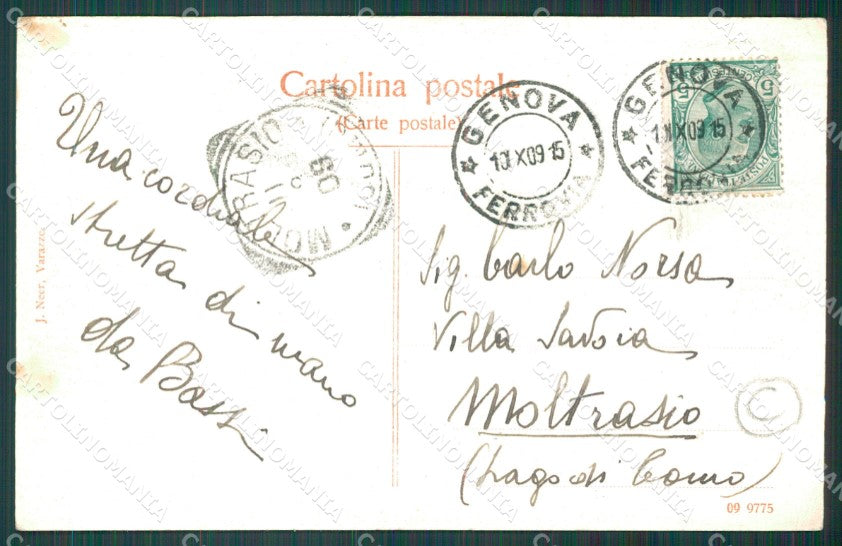 Cartolina postale
(Carte postale)
GENOVA
10 X 09 15
FERROVIA
GENOVA
10 X 09 15
FERROVIA
5
5
MOLTRASIO
09
Una cordiale
stretta di mano
da Bassi
Sig. Carlo Norsa
Villa Savoia
Moltrasio
(Lago di Como)
C
J. Neer, Varazze
09 9775
CARTOLINOMANIA